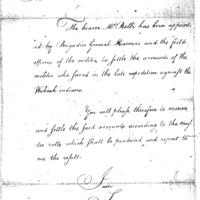 The bearer Mr Wells has been appoint
ed by Brigadier General Harmar and the field
officers of the militia to settle the accounts of the
militia who served in the late expedition against the
Wabash indians.
You will please therefore to receive
and settle the said accounts according to the mus
ter rolls which shall be produced and report to
me the result.
I am